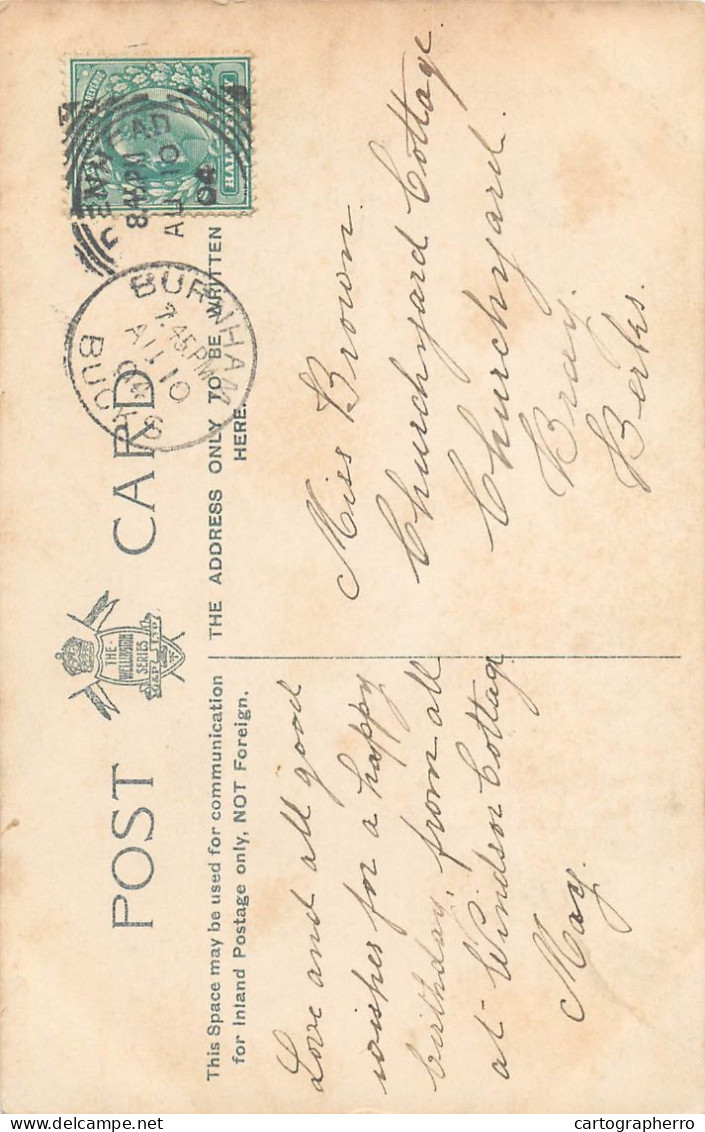 POST CARD
THE
WELLINGTON
SERIES
This Space may be used for communication
for Inland Postage only, NOT Foreign.
THE ADDRESS ONLY TO BE WRITTEN
HERE.
Love and all good
wishes for a happy
birthday, from all
at Windsor Cottage
May.
Miss Brown.
Churchyard Cottage
Churchyard.
Bray.
Berks.
HALFPENNY
8.45PM
AU 10
04
BURNHAM
7.45PM
AU 10
BUCKS
cartographerro